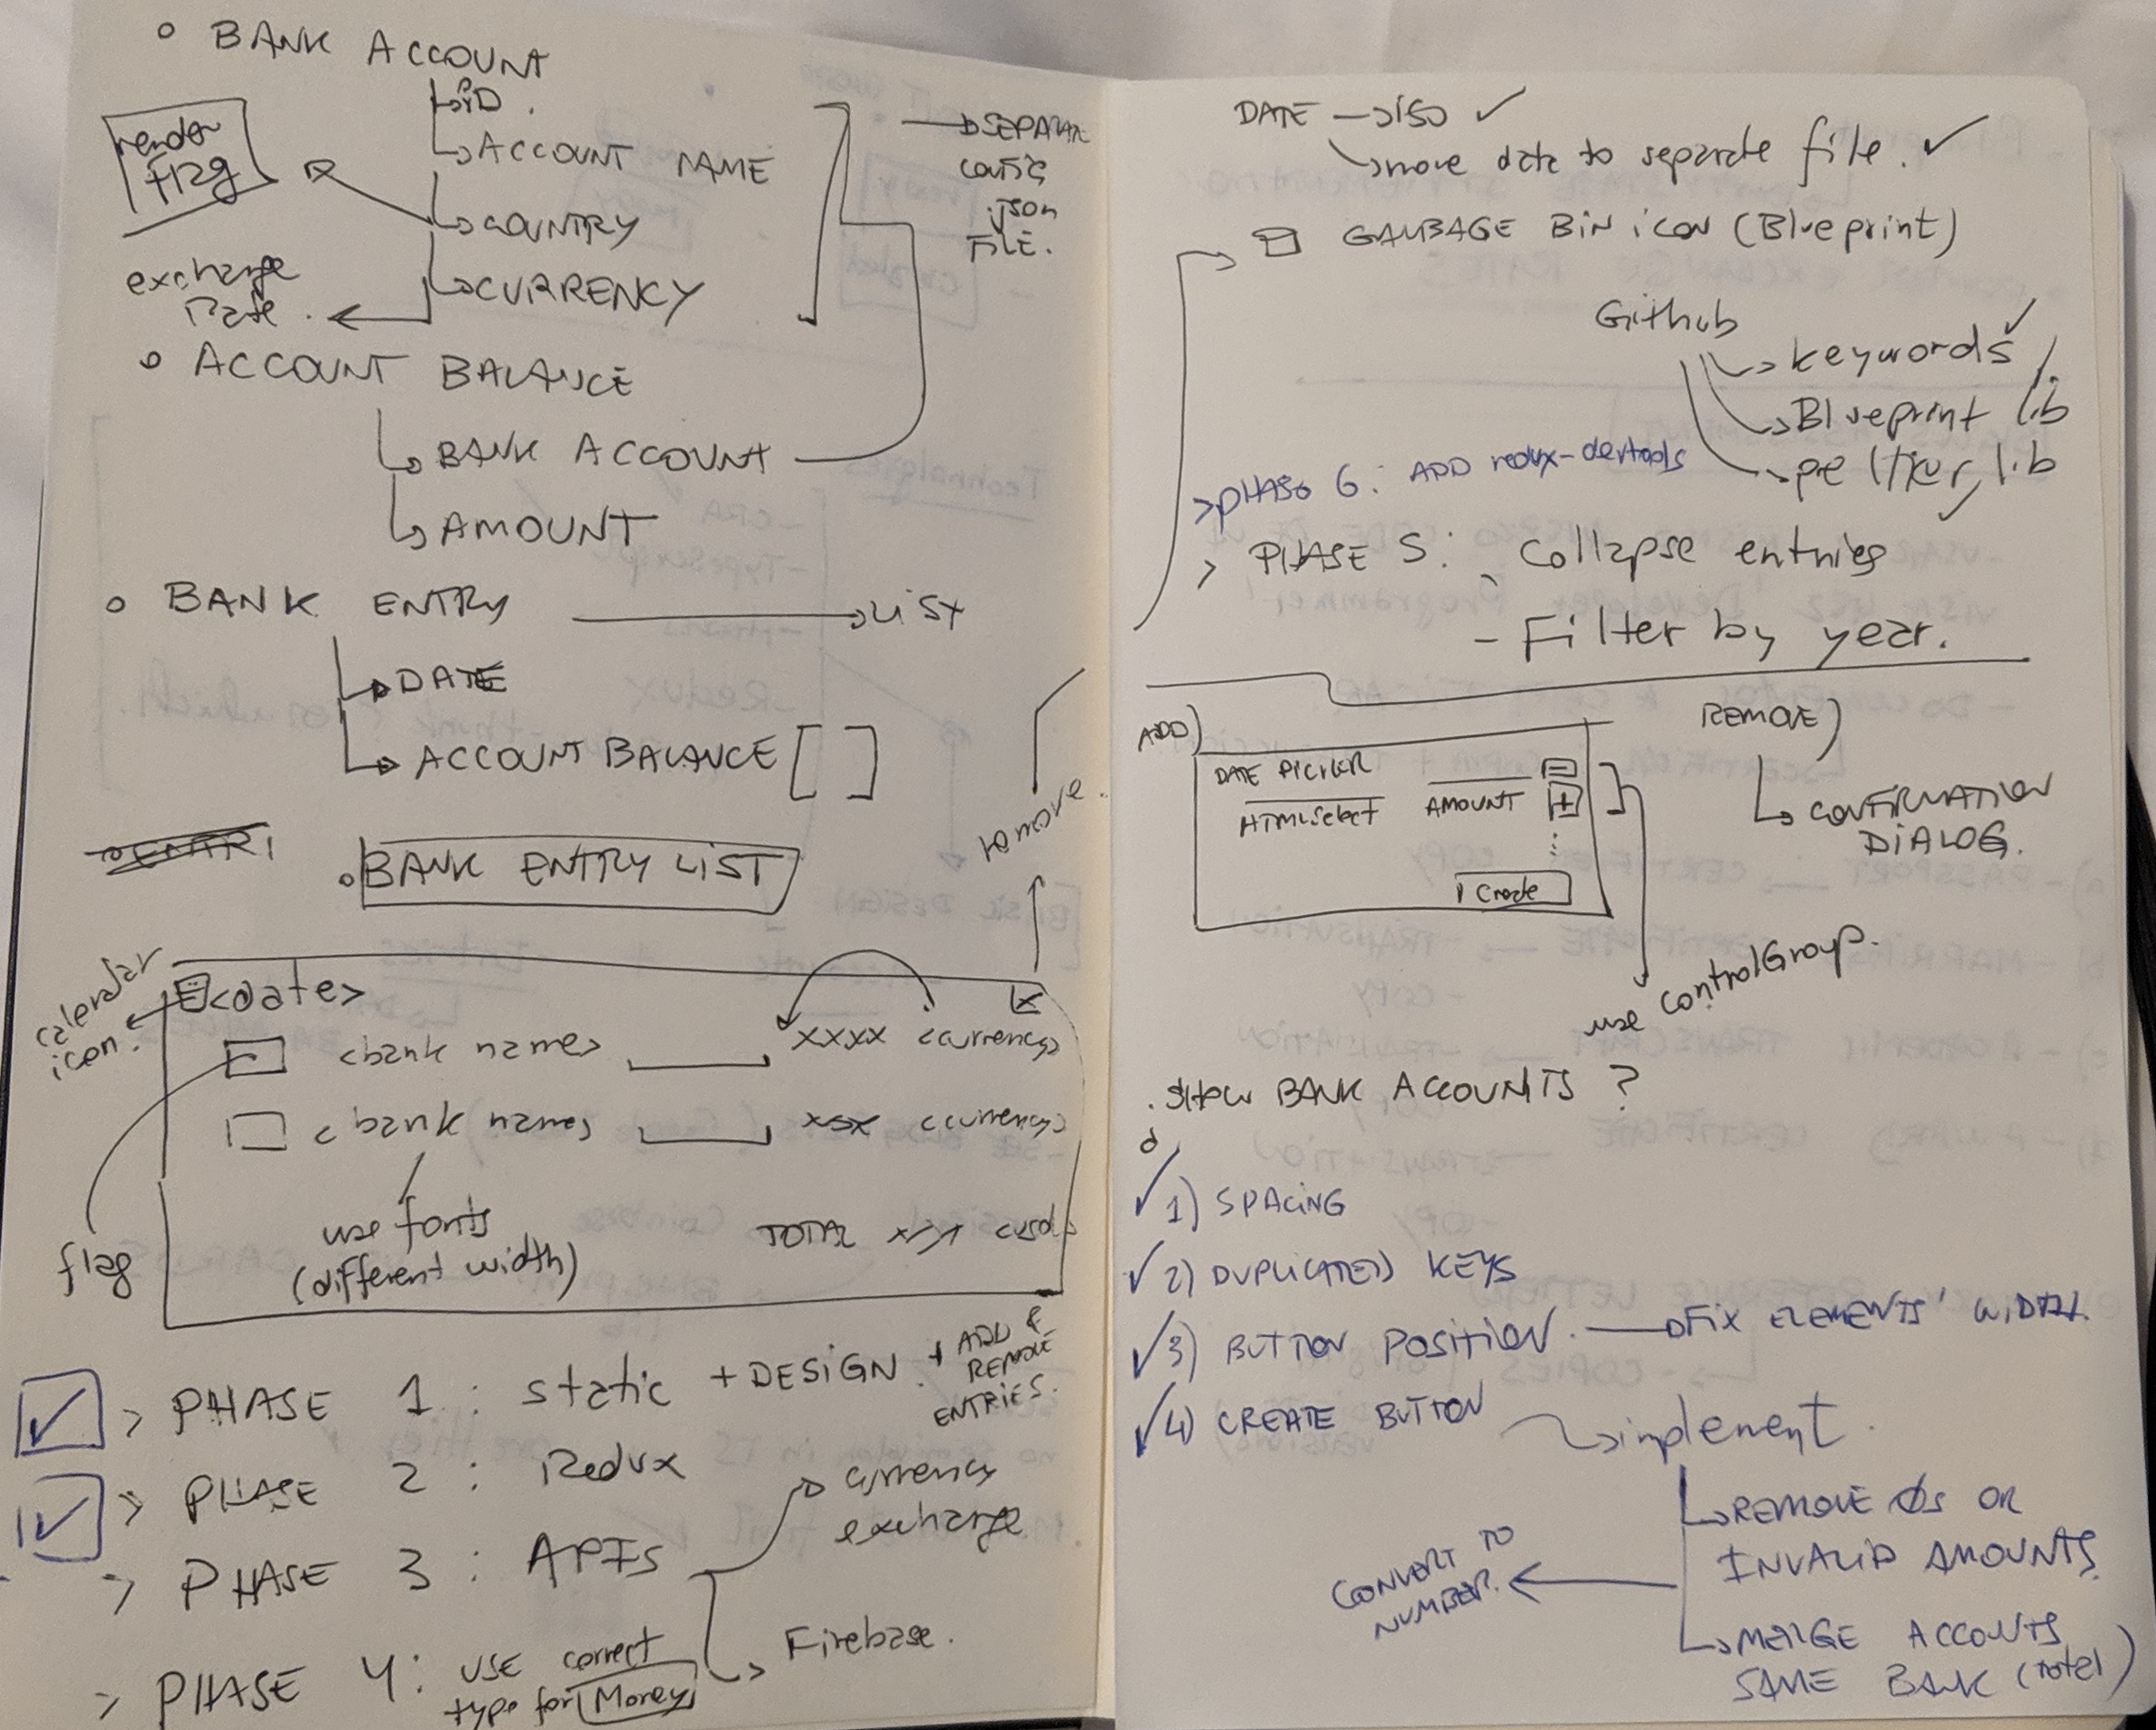 BANK ACCOUNT
ID.
ACCOUNT NAME
COUNTRY
CURRENCY
render
flag
exchange
Rate.
SEPARATE
CONFIG
json
FILE.
ACCOUNT BALANCE
BANK ACCOUNT
AMOUNT
BANK ENTRY → LIST
DATE
ACCOUNT BALANCE []
BANK ENTRY LIST
remove.
calendar
icon.
<date> x
<bank name> xxxx <currency>
<bank name> xxx <currency>
flag
use fonts
(different width)
TOTAL xxx <usd>
> PHASE 1: static + DESIGN. + ADD &
REMOVE
ENTRIES.
> PHASE 2: Redux
> PHASE 3: APIs
currency
exchange
Firebase.
> PHASE 4: USE correct
type for Money
DATE → iso ✓
move data to separate file. ✓
GARBAGE BIN icon (Blueprint)
Github
keywords ✓
Blueprint lib
lib
> PHASE 6: ADD redux-devtools
> PHASE 5: Collapse entries
- Filter by year.
ADD)
DATE PICKER
HTMLSelect AMOUNT +
Create
use ControlGroup.
REMOVE)
CONFIRMATION
DIALOG.
. SHOW BANK ACCOUNTS ?
✓ 1) SPACING
✓ 2) DUPLICATED KEYS
✓ 3) BUTTON POSITION. → FIX ELEMENTS' WIDTH.
✓ 4) CREATE BUTTON → implement.
REMOVE Øs OR
INVALID AMOUNTS
CONVERT TO
NUMBER.
MERGE ACCOUNTS
SAME BANK (total)